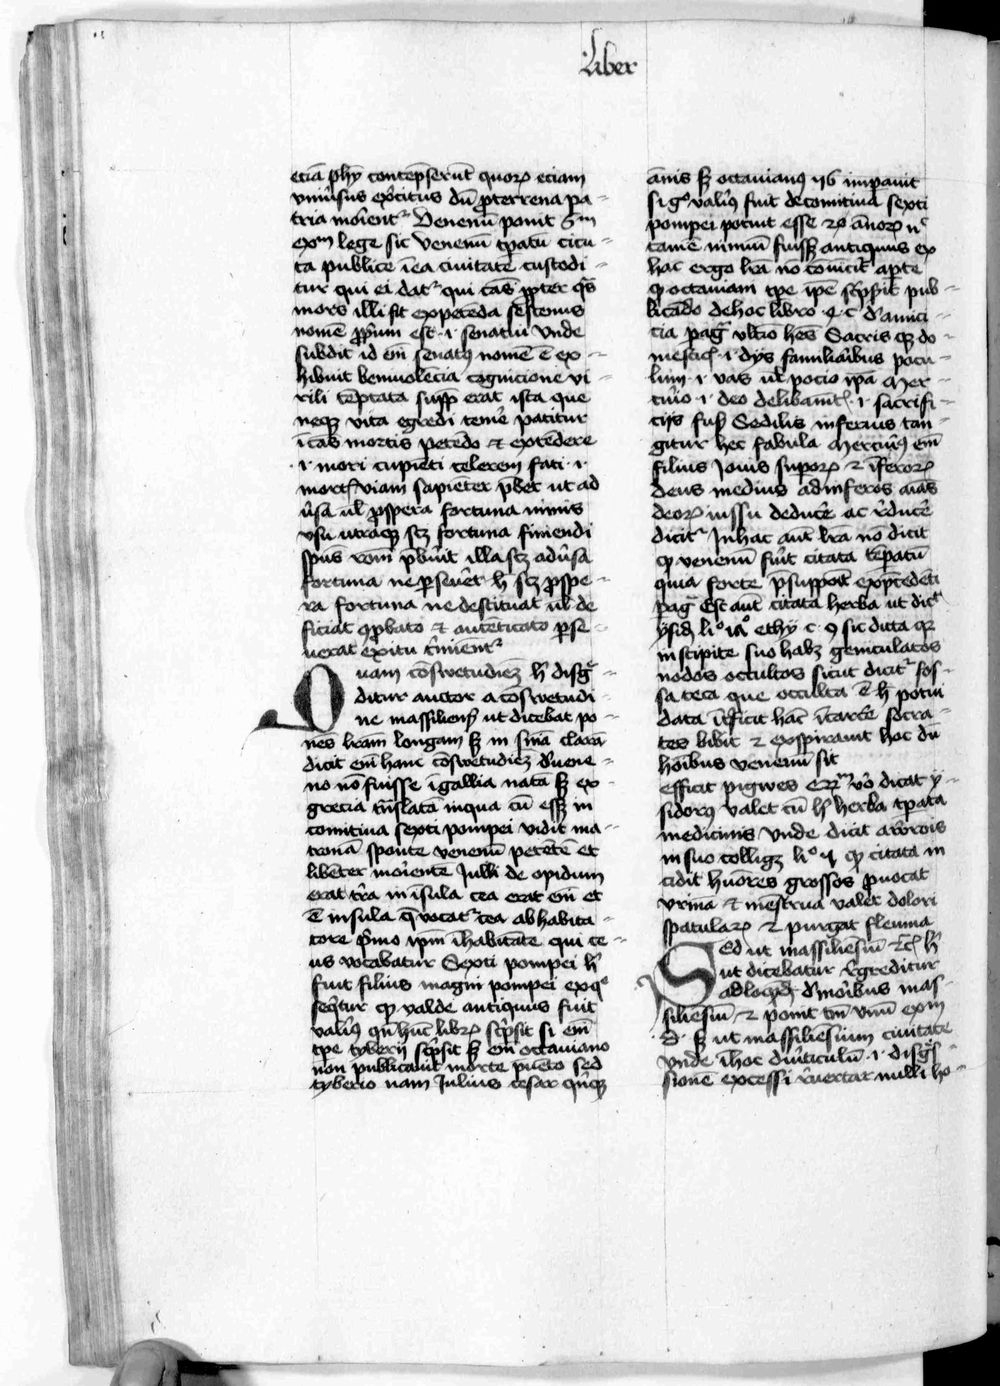 Liber
eciā phȳ contēpserūt quorꝫ eciam
vniūsus exc̄itus dū p̱terrena pa-
tria moient᷑ Venenū ponit 3m
exm lege sic venenū tꝑatū cicu-
ta publice ī ea ciuitate custodi-
tur qui ei dat᷑ qui cās ꝓpter q̄s
mors illi sit expetēda sescentis
nomē ꝓpriū est ·i· senatui vnde
subdit id em̄ senatꝰ nomē ē ex-
hibuit beniuolēcia cognicione vi-
rili tēptata suꝑ erat ista que
neqꝫ vita egredi teme᷑ patitur
ī cās mortis petēdo et extēdere
·i· mori cupiēti celerem fati ·i·
mortꝭ viam sapiēter p̱bet ut ad
ūsa ul̄ ꝓspera fortuna nimis
vsu utraqꝫ scꝫ fortuna finiendi
sp̄us rōm p̱buit illa scꝫ adūsa
fortuna ne ꝑseuēt h̄ scꝫ ꝓspe-
ra fortuna ne destituat ul̄ de
ficiat ꝯprobato et autēticato ꝑse-
uerat exitu t̄mient᷑
Quam cōswetudīeꝫ h̄ disg̃
ditur auctor a cōswetudi-
ne massiliēn̄ ut dicebat po-
nēs l̄ram longam sꝫ in s̄nīa claram
dicit em̄ hanc cōswetudīeꝫ d̕ vene-
no nō fuisse ī gallia natā sꝫ ex
grecia trāslatā in qua cū esset in
comitiua sexti pompei vidit ma-
tronā sponte venenū petētē et
libēter moriētē Iulli de opidum
erat tr̄a in īsula cea erat em̄ et
ē insula q̄ vocat᷑ cea ab habita-
tore p̄mo ip̄m īhabitāte qui ce-
us vocabatur Sexti pompei h̄
fuit filius magni pompei ex q°
seqtur ꝙ valde antiquus fuit
valeriꝰ qn̄ hūc librꝫ sc̄psit si em̄
tꝑe tyberij sc̄psit sꝫ em̄ octauiano
non publicauit morte p̄uēto sed
tyberio nam Iulius cesar qn̄qꝫ
annis sꝫ octauianꝰ 56 īmpauit
si g° valeriꝰ fuit de comitiua sexti
pompei potuit esse 20 ānorꝫ n͛
tamē nimiū fuisꝫ antiquus ex
hac ergo l̄ra nō cōuīcit᷑ aꝑte
ꝙ octauiani tꝑe ip̄e sc̄psit pub-
licādo de hoc libro 4 c d̕ amici-
cia pag̃ vltīo hēs Sacris qꝫ do-
mesticꝭ ·i· dijs familiaribus pocu-
lum ·i· vas ul̄ pocio ip̄a Mer-
curio ·i· deo delibauit ·i· sacrifi-
cijs fusꝫ Sedilis inferius tan-
gitur hec fabula Mercuriꝰ em̄
filius Iouis suꝑorꝫ et īferorꝫ
deus medius ad inferos aīas
deorꝫ iussu deduce᷑ ac reduce᷑
dicit᷑ In hac aut̄ l̄ra nō dicit
ꝙ venenū fuit cicuta tēꝑatū
quia forte p̱suppoīt ex p̱cedēti
pag̃ Est aut̄ cicuta herba ut dic͛
ysid̄ li° 17° ethȳ c · 9 sic dicta qꝫ
in stipite suo habꝫ geniculatos
nodos occultos sicut dicit᷑ fos-
sa ceca que occulta ē h̄ potui
data īt̄ficit hāc ī carcē socra-
tes bibit et exspirauit hoc dū
hoibus venenū sit
efficit pigwes 
sidorꝰ valet tū h̄ herba tꝑata
medicinis vnde dicit 
in suo colligꝫ li° 5 ꝙ cicuta in
cidit humores grossos ꝓuocat
vrinā et mēstrua valet dolori
spatularꝫ et purgat fleuma
Sed ut massiliēsiū etc̄ h̄
ut dicebatur r̄greditur
ad loqēdꝫ d̕ moribus mas-
siliēsiū et ponit tm̄ vnū exm
·d· sꝫ ut massiliēsium ciuitate
vnde ī hoc diuticulū ·i· disg̃s
sionē excessi r̄uertar nulli ho-